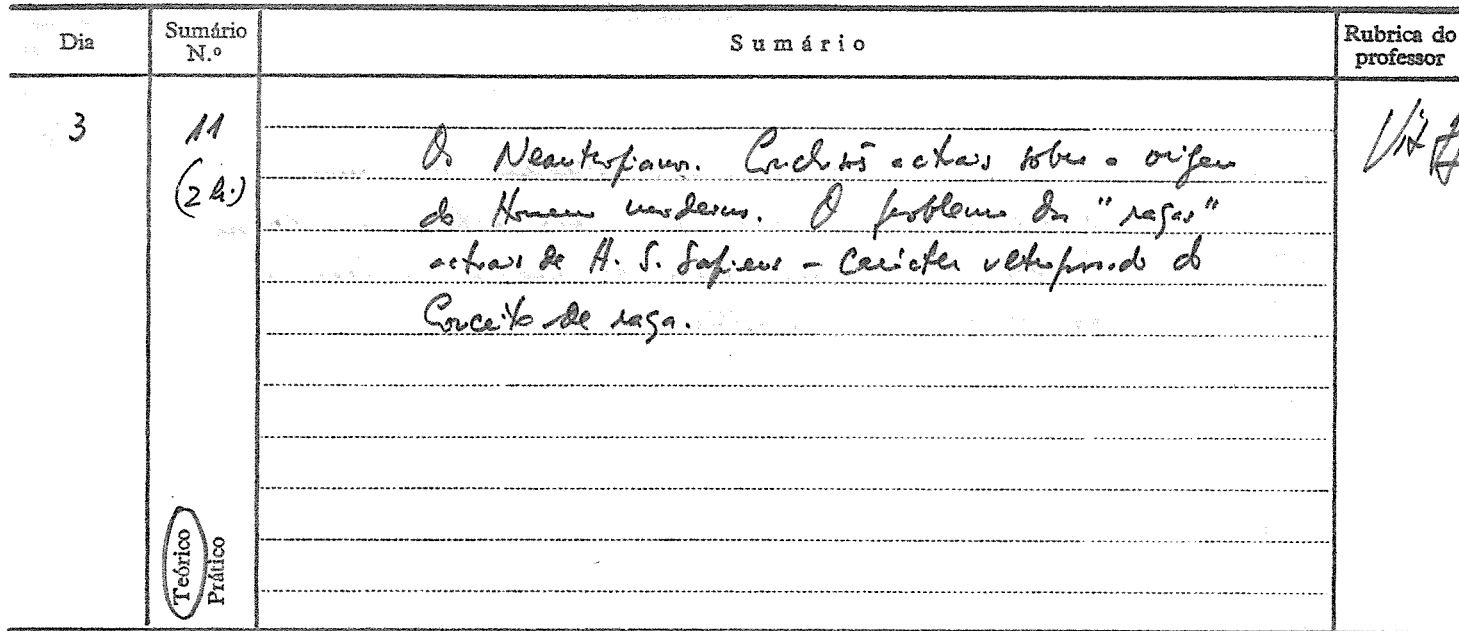 Dia
Sumário N.º
Sumário
Rubrica do professor
3
11
(2 h.)
Os Neantropianos. Conclusões actuais sobre a origem
do Homem moderno. O problema das "raças"
actuais de H. S. Sapiens - carácter ultrapassado do
Conceito de raça.
Teórico
Prático